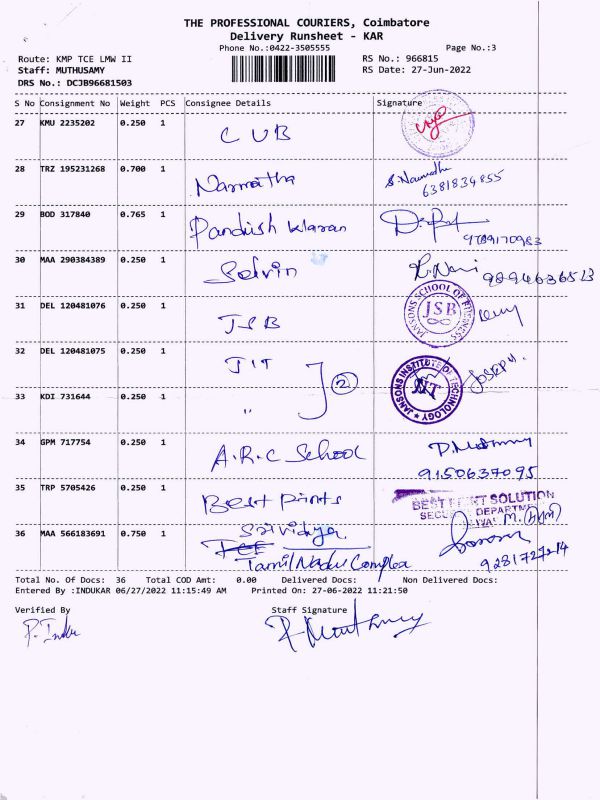 THE PROFESSIONAL COURIERS, Coimbatore
Delivery Runsheet - KAR
Phone No.:0422-3505555 Page No.:3
Route: KMP TCE LMW II RS No.: 966815
Staff: MUTHUSAMY RS Date: 27-Jun-2022
DRS No.: DCJB96681503
S No Consignment No Weight PCS Consignee Details Signature
27 KMU 2235202 0.250 1 CUB
28 TRZ 195231268 0.700 1 Narmatha S. Narmatha
6381834855
29 BOD 317840 0.765 1 Pandiish
9789170983
30 MAA 290384389 0.250 1 Selvin 9894636513
31 DEL 120481076 0.250 1 JSB JANSONS SCHOOL OF BUSINESS JSB
32 DEL 120481075 0.250 1 JIT 2 JANSONS INSTITUTE OF TECHNOLOGY JIT JOSEPH
33 KDI 731644 0.250 1 "
34 GPM 717754 0.250 1 A.R.C School
9150637095
35 TRP 5705426 0.250 1 Best Prints BEST PRINT SOLUTION
DEPARTMENT
36 MAA 566183691 0.750 1 Srividya
TCE
Tamil Nadu Complex
Total No. Of Docs: 36 Total COD Amt: 0.00 Delivered Docs: Non Delivered Docs:
Entered By :INDUKAR 06/27/2022 11:15:49 AM Printed On: 27-06-2022 11:21:50
Verified By Staff Signature
P. Indu